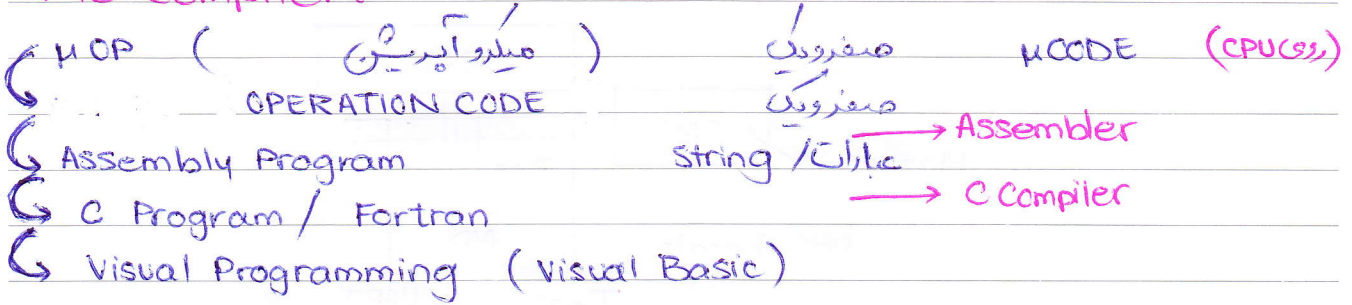 μOP ( میکروآپریشن ) صفرویک μCODE (روی CPU)
OPERATION CODE صفرویک
Assembly Program String / عبارات → Assembler
C Program / Fortran → C Compiler
Visual Programming (Visual Basic)